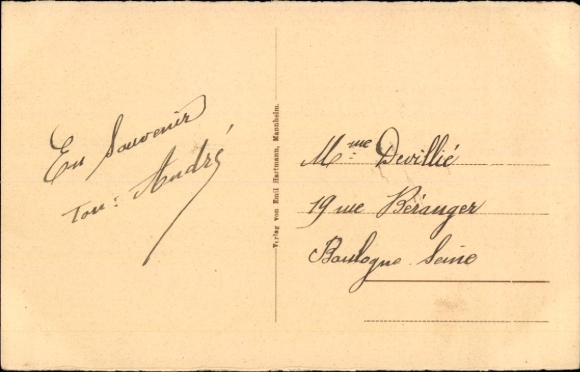 En Souvenir
Ton: André
Verlag von Emil Hartmann, Mannheim.
Mme Devillié
19 rue Béranger
Boulogne Seine